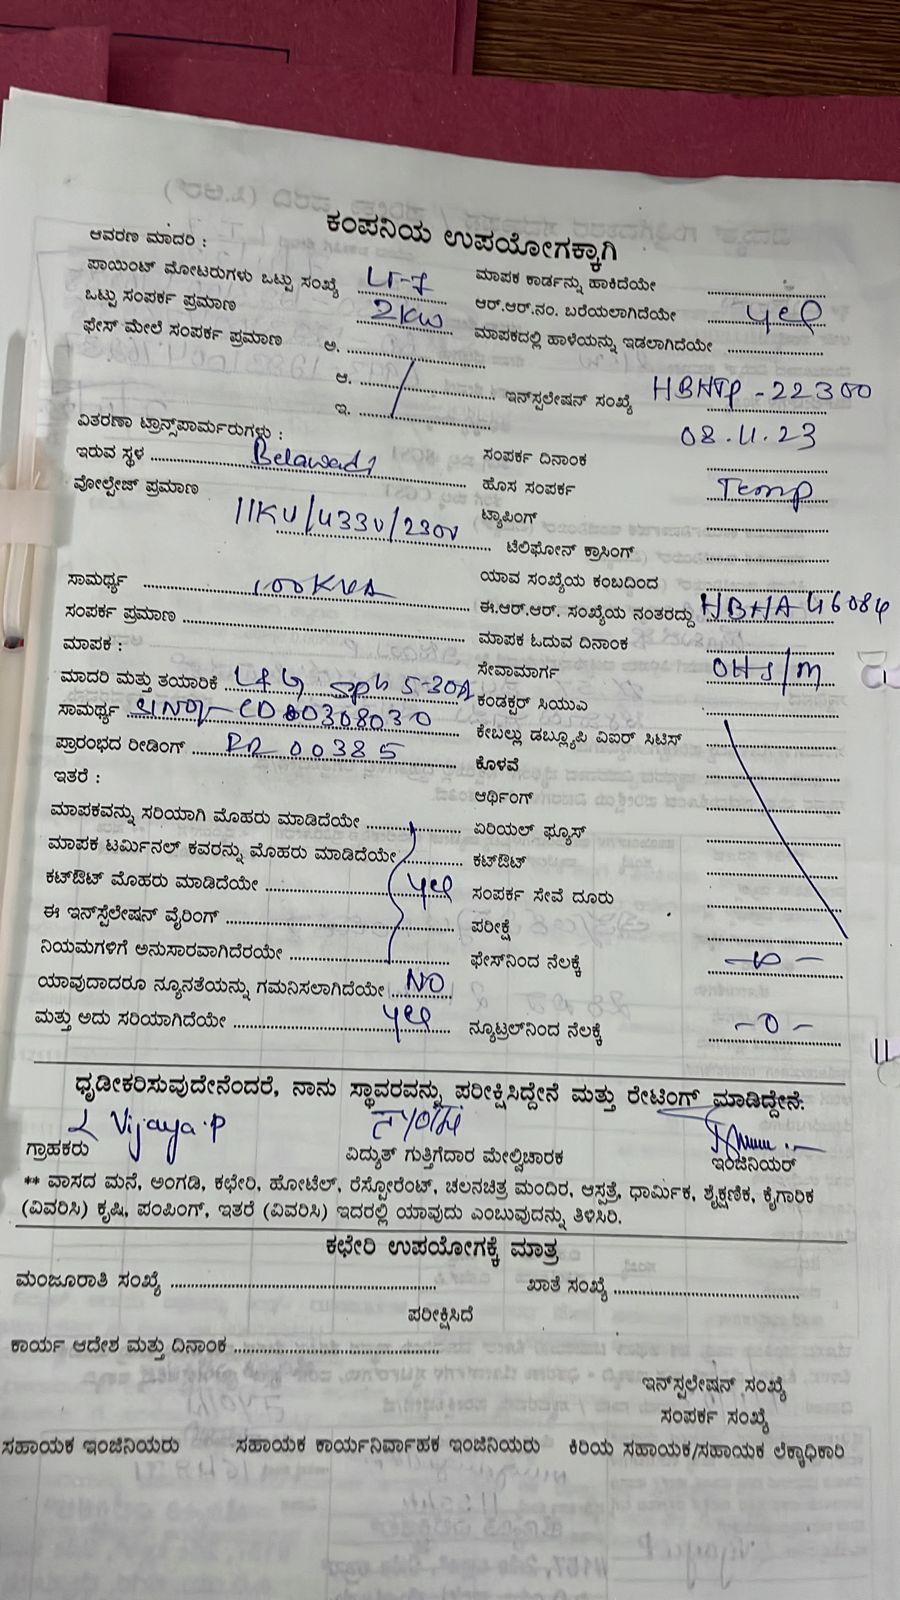 ಕಂಪನಿಯ ಉಪಯೋಗಕ್ಕಾಗಿ
ಆವರಣ ಮಾದರಿ :
ಪಾಯಿಂಟ್ ಮೋಟರುಗಳು ಒಟ್ಟು ಸಂಖ್ಯೆ LT-7 ಮಾಪಕ ಕಾರ್ಡನ್ನು ಹಾಕಿದೆಯೇ
ಒಟ್ಟು ಸಂಪರ್ಕ ಪ್ರಮಾಣ 2KW ಆರ್.ಆರ್.ನಂ. ಬರೆಯಲಾಗಿದೆಯೇ yes
ಫೇಸ್ ಮೇಲೆ ಸಂಪರ್ಕ ಪ್ರಮಾಣ ಅ. ಮಾಪಕದಲ್ಲಿ ಹಾಳೆಯನ್ನು ಇಡಲಾಗಿದೆಯೇ
ಆ. ಇನ್‌ಸ್ಪಲೇಷನ್ ಸಂಖ್ಯೆ HBHTP-22300
ಇ. 08.11.23
ವಿತರಣಾ ಟ್ರಾನ್ಸ್‌ಪಾರ್ಮರುಗಳು : ಸಂಪರ್ಕ ದಿನಾಂಕ
ಇರುವ ಸ್ಥಳ Belawadi ಹೊಸ ಸಂಪರ್ಕ Temp
ವೋಲ್ಟೇಜ್ ಪ್ರಮಾಣ 11KV/433V/230V ಟ್ಯಾಪಿಂಗ್
ಟೆಲಿಫೋನ್ ಕ್ರಾಸಿಂಗ್
ಸಾಮರ್ಥ್ಯ 100KVA ಯಾವ ಸಂಖ್ಯೆಯ ಕಂಬದಿಂದ
ಸಂಪರ್ಕ ಪ್ರಮಾಣ ಈ.ಆರ್.ಆರ್. ಸಂಖ್ಯೆಯ ನಂತರದ್ದು HBHA46084
ಮಾಪಕ : ಮಾಪಕ ಓದುವ ದಿನಾಂಕ
ಮಾದರಿ ಮತ್ತು ತಯಾರಿಕೆ L&G Sph 5-30A ಸೇವಾಮಾರ್ಗ OHS/M
ಸಾಮರ್ಥ್ಯ ಕಂಡಕ್ಟರ್ ಸಿಯುವಿ
ಪ್ರಾರಂಭದ ರೀಡಿಂಗ್ 00385 ಕೇಬಲ್ಲು ಡಬ್ಲ್ಯೂಪಿ ವಿಐರ್ ಸಿಟಿಸ್
ಇತರೆ : ಕೊಳವೆ
ಆರ್ಥಿಂಗ್
ಮಾಪಕವನ್ನು ಸರಿಯಾಗಿ ಮೊಹರು ಮಾಡಿದೆಯೇ ಏರಿಯಲ್ ಫ್ಯೂಸ್
ಮಾಪಕ ಟರ್ಮಿನಲ್ ಕವರನ್ನು ಮೊಹರು ಮಾಡಿದೆಯೇ ಕಟ್‌ಔಟ್
ಕಟ್‌ಔಟ್ ಮೊಹರು ಮಾಡಿದೆಯೇ yes ಸಂಪರ್ಕ ಸೇವೆ ದೂರು
ಈ ಇನ್‌ಸ್ಪೆಲೇಷನ್ ವೈರಿಂಗ್ ಪರೀಕ್ಷೆ
ನಿಯಮಗಳಿಗೆ ಅನುಸಾರವಾಗಿದೆರಯೇ ಫೇಸ್‌ನಿಂದ ನೆಲಕ್ಕೆ -0-
ಯಾವುದಾದರೂ ನ್ಯೂನತೆಯನ್ನು ಗಮನಿಸಲಾಗಿದೆಯೇ NO
ಮತ್ತು ಅದು ಸರಿಯಾಗಿದೆಯೇ yes ನ್ಯೂಟ್ರಲ್‌ನಿಂದ ನೆಲಕ್ಕೆ -0-
ಧೃಡೀಕರಿಸುವುದೇನೆಂದರೆ, ನಾನು ಸ್ಥಾವರವನ್ನು ಪರೀಕ್ಷಿಸಿದ್ದೇನೆ ಮತ್ತು ರೇಟಿಂಗ್ ಮಾಡಿದ್ದೇನೆ.
Vijaya.P
ಗ್ರಾಹಕರು ವಿದ್ಯುತ್ ಗುತ್ತಿಗೆದಾರ ಮೇಲ್ವಿಚಾರಕ ಇಂಜಿನಿಯರ್
** ವಾಸದ ಮನೆ, ಅಂಗಡಿ, ಕಛೇರಿ, ಹೋಟೆಲ್, ರೆಸ್ಟೋರೆಂಟ್, ಚಲನಚಿತ್ರ ಮಂದಿರ, ಆಸ್ಪತ್ರೆ, ಧಾರ್ಮಿಕ, ಶೈಕ್ಷಣಿಕ, ಕೈಗಾರಿಕೆ
(ವಿವರಿಸಿ) ಕೃಷಿ, ಪಂಪಿಂಗ್, ಇತರೆ (ವಿವರಿಸಿ) ಇದರಲ್ಲಿ ಯಾವುದು ಎಂಬುವುದನ್ನು ತಿಳಿಸಿರಿ.
ಕಛೇರಿ ಉಪಯೋಗಕ್ಕೆ ಮಾತ್ರ
ಮಂಜೂರಾತಿ ಸಂಖ್ಯೆ ಖಾತೆ ಸಂಖ್ಯೆ
ಪರೀಕ್ಷಿಸಿದೆ
ಕಾರ್ಯ ಆದೇಶ ಮತ್ತು ದಿನಾಂಕ
ಇನ್‌ಸ್ಪಲೇಷನ್ ಸಂಖ್ಯೆ
ಸಂಪರ್ಕ ಸಂಖ್ಯೆ
ಸಹಾಯಕ ಇಂಜಿನಿಯರು ಸಹಾಯಕ ಕಾರ್ಯನಿರ್ವಾಹಕ ಇಂಜಿನಿಯರು ಕಿರಿಯ ಸಹಾಯಕ/ಸಹಾಯಕ ಲೆಕ್ಕಾಧಿಕಾರಿ